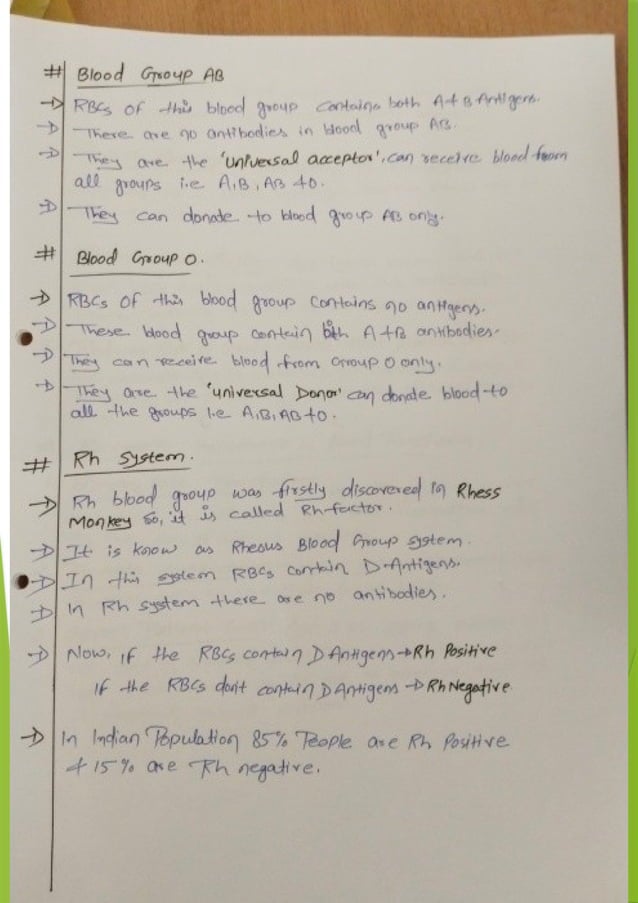 # Blood Group AB
→ RBCs of this blood group contains both A & B Antigens.
→ There are no antibodies in blood group AB.
→ They are the 'universal acceptor', can receive blood from
all groups i.e A, B, AB & O.
→ They can donate to blood group AB only.
# Blood Group O.
→ RBCs of this blood group contains no antigens.
→ These blood group contain both A & B antibodies.
→ They can receive blood from Group O only.
→ They are the 'universal Donor' can donate blood to
all the groups i.e A, B, AB & O.
# Rh System.
→ Rh blood group was firstly discovered in Rhess
Monkey so, it is called Rh-factor.
→ It is know as Rhesus Blood Group system.
→ In this system RBCs contain D-Antigens.
→ In Rh system there are no antibodies.
→ Now, if the RBCs contain D Antigens → Rh Positive
If the RBCs don't contain D Antigens → Rh Negative
→ In Indian Population 85% People are Rh Positive
& 15% are Rh negative.